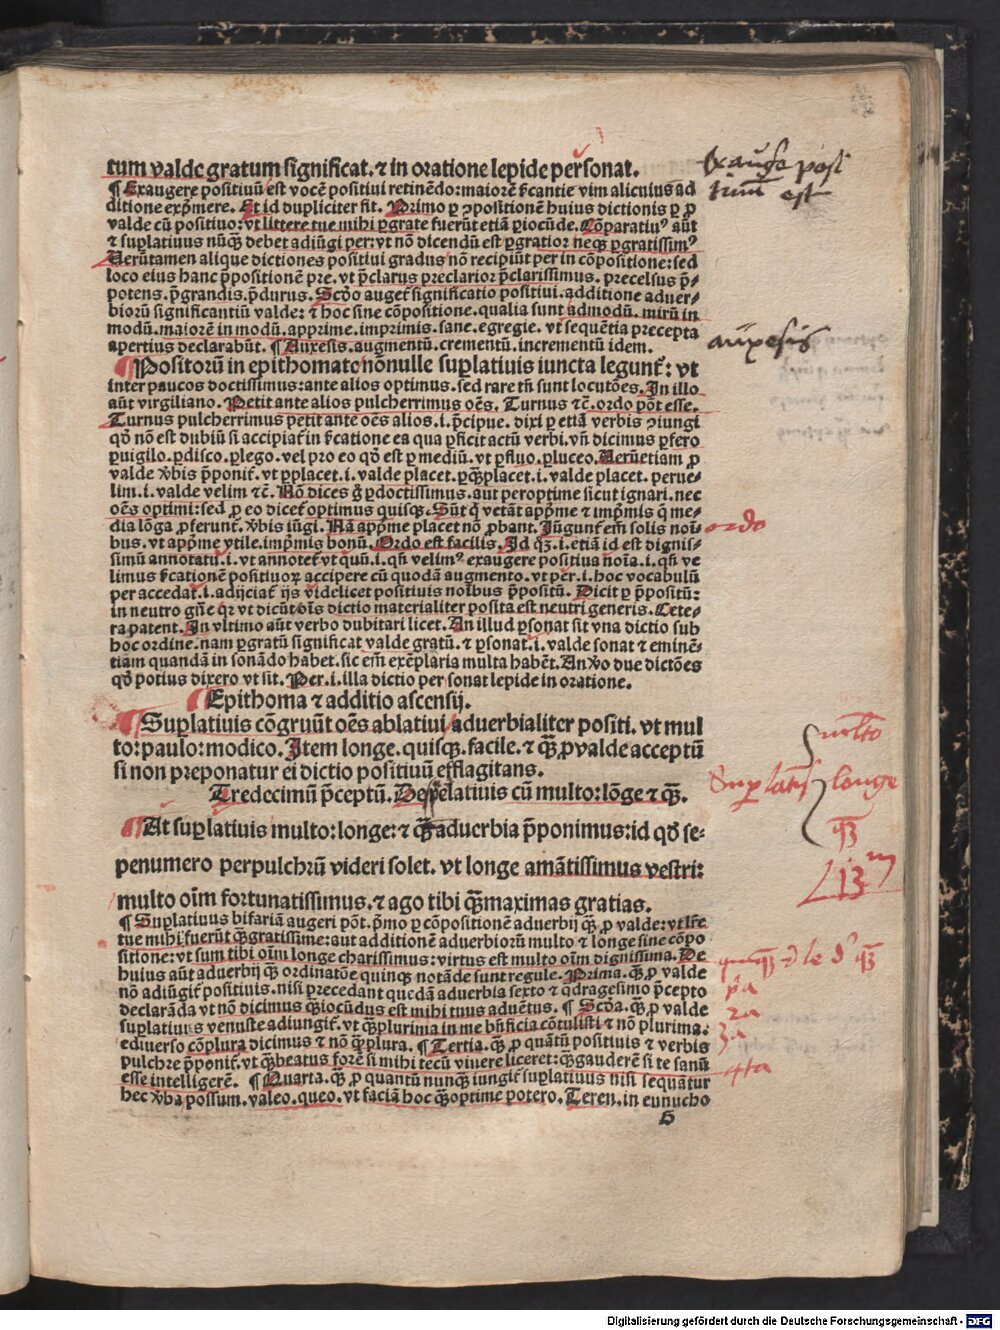 tum valde gratum significat. ⁊ in oratione lepide personat.
¶ Exaugere positiuū est vocē positiui retinēdo: maiorē ſcantie vim alicuius ad
ditione exp̄mere. Et id dupliciter fit. Primo ꝑ ꝯpositionē huius dictionis ꝑ ꝓ
valde cū positiuo: vt littere tue mihi ꝑgrate fuerūt etiā ꝑiocūde. Cōparatiuꝰ aūt
⁊ suꝑlatiuus nūꝗ̄ debet adiūgi per: vt nō dicendū est ꝑgratior neqꝫ ꝑgratissimꝰ
Verūtamen alique dictiones positiui gradus nō recipiūt per in cōpositione: sed
loco eius hanc p̄positionē pre. vt p̄clarus preclarior p̄clarissimus. precelsus p̄-
potens. p̄grandis. p̄durus. Scd̄o auget̄ significatio positiui. additione aduer-
biorū significantiū valde: ⁊ hoc sine cōpositione. qualia sunt admodū. mirū in
modū. maiorē in modū. apprime. imprimis. sane. egregie. vt sequētia precepta
apertius declarabūt. ¶ Auxesis. augmentū. crementū. incrementū idem.
¶ Positorū in epithomate nōnulle suꝑlatiuis iuncta legunt̄: vt
inter paucos doctissimus: ante alios optimus. sed rare tn̄ sunt locutōes. In illo
aūt virgiliano. Petit ante alios pulcherrimus oēs. Turnus ⁊c̄. ordo pōt esse.
Turnus pulcherrimus petit ante oēs alios. i. p̄cipue. dixi ꝑ etiā verbis ꝯiungi
qd̄ nō est dubiū si accipiat̄ in ſcatione ea qua ꝑficit actū verbi. vn̄ dicimus ꝑfero
ꝑuigilo. ꝑdisco. ꝑlego. vel pro eo qd̄ est ꝑ mediū. vt ꝑfluo. ꝑluceo. Verūetiam ꝓ
valde v̄bis p̄ponit̄. vt ꝑplacet. i. valde placet. ꝑꝗ̄placet. i. valde placet. perue-
lim. i. valde velim ⁊c̄. Nō dices g̊ ꝑdoctissimus. aut peroptime sicut ignari. nec
oēs optimi: sed ꝓ eo dicet̄ optimus quisqꝫ. Sūt q̄ vetāt app̄me ⁊ imp̄mis q̄ me-
dia lōga ꝓferunt̄. v̄bis iūgi. Nā app̄me placet nō ꝓbant. Iūgunt̄ em̄ solis noi-
bus. vt app̄me vtile. imp̄mis bonū. Ordo est facilis. Id qꝫ. i. etiā id est dignis-
simū annotatu. i. vt annotet̄ vt quū. i. qn̄ velimꝰ exaugere positiua noīa. i. qn̄ ve
limus ſcationē positiuoꝝ accipere cū quodā augmento. vt per. i. hoc vocabulū
per accedat. i. adijciat̄ ijs videlicet positiuis noībus p̄positū. Dicit ꝑ p̄positū:
in neutro gn̄e qr vt dicūt oīs dictio materialiter posita est neutri generis. Cete-
ra patent. In vltimo aūt verbo dubitari licet. An illud ꝑsonat sit vna dictio sub
hoc ordine. nam ꝑgratū significat valde gratū. ⁊ ꝑsonat. i. valde sonat ⁊ eminē-
tiam quandā in sonādo habet. sic em̄ exēplaria multa habēt. An v̄o due dictōes
qd̄ potius dixero vt sit. Per. i. illa dictio per sonat lepide in oratione.
¶ Epithoma ⁊ additio ascensij.
¶ Suꝑlatiuis cōgruūt oēs ablatiui aduerbialiter positi. vt mul
to: paulo: modico. Item longe. quisqꝫ. facile. ⁊ ꝗ̄. ꝓ valde acceptū
si non preponatur ei dictio positiuū efflagitans.
Tredecimū p̄ceptū. De suꝑlatiuis cū multo: lōge ⁊ ꝗ̄.
¶ At suꝑlatiuis multo: longe: ⁊ ꝗ̄ aduerbia p̄ponimus: id qd̄ se-
penumero perpulchrū videri solet. vt longe amātissimus vestri:
multo oīm fortunatissimus. ⁊ ago tibi ꝗ̄maximas gratias.
¶ Suꝑlatiuus bifariā augeri pōt. p̄mo ꝑ cōpositionē aduerbij ꝗ̄ ꝓ valde: vt lr̄e
tue mihi fuerūt ꝗ̄gratissime: aut additionē aduerbiorū multo ⁊ longe sine cōpo
sitione: vt sum tibi oīm longe charissimus: virtus est multo oīm dignissima. De
huius aūt aduerbij ꝗ̄ ordinatōe quinqꝫ notāde sunt regule. Prima. ꝗ̄. ꝓ valde
nō adiūgit̄ positiuis. nisi precedant quedā aduerbia sexto ⁊ qdragesimo p̄cepto
declarāda vt nō dicimus ꝗ̄iocūdus est mihi tuus aduētus. ¶ Scd̄a. ꝗ̄. ꝓ valde
suꝑlatiuis venuste adiungit̄. vt ꝗ̄plurima in me bn̄ficia cōtulisti ⁊ nō plurima.
ediuerso cōplura dicimus ⁊ nō ꝗ̄plura. ¶ Tertia. ꝗ̄. ꝓ quātū positiuis ⁊ verbis
pulchre p̄ponit̄. vt ꝗ̄beatus forē si mihi tecū viuere liceret: ꝗ̄gauderē si te sanū
esse intelligerē. ¶ Quarta. ꝗ̄. ꝓ quantū nunꝗ̄ iungit̄ suꝑlatiuus nisi sequātur
hec v̄ba possum. valeo. queo. vt faciā hoc ꝗ̄optime potero. Teren. in eunucho
Exaugere posi
tiuū est
auxesis
ordo
multo
Suꝑlatiuis longe
ꝗ̄
13
pa
2a
3a
4ta
Digitalisierung gefördert durch die Deutsche Forschungsgemeinschaft - DFG